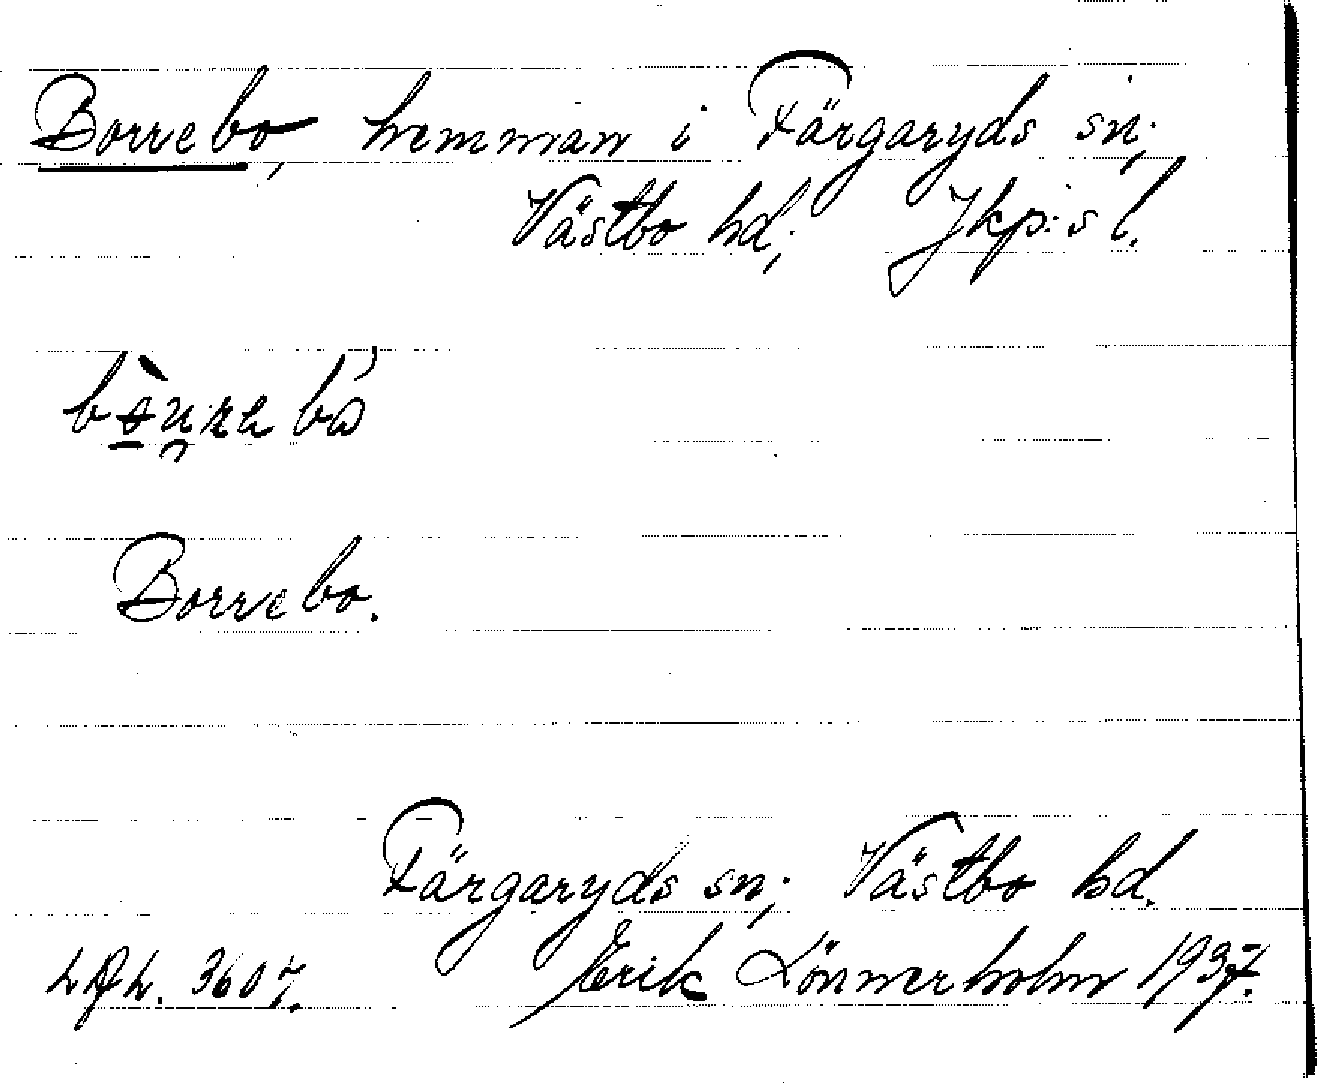 Borrebo, hemman i Färgaryds sn;
Västbo hd; Jkp:s l.
Borrebo.
Färgaryds sn; Västbo hd.
Erik Lönnerholm 1937.
3607.